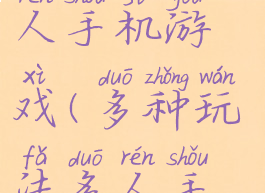 rén shǒu jī yóu
人手机游
xì duō zhǒng wán
戏(多种玩
fǎ duō rén shǒu
法多人手